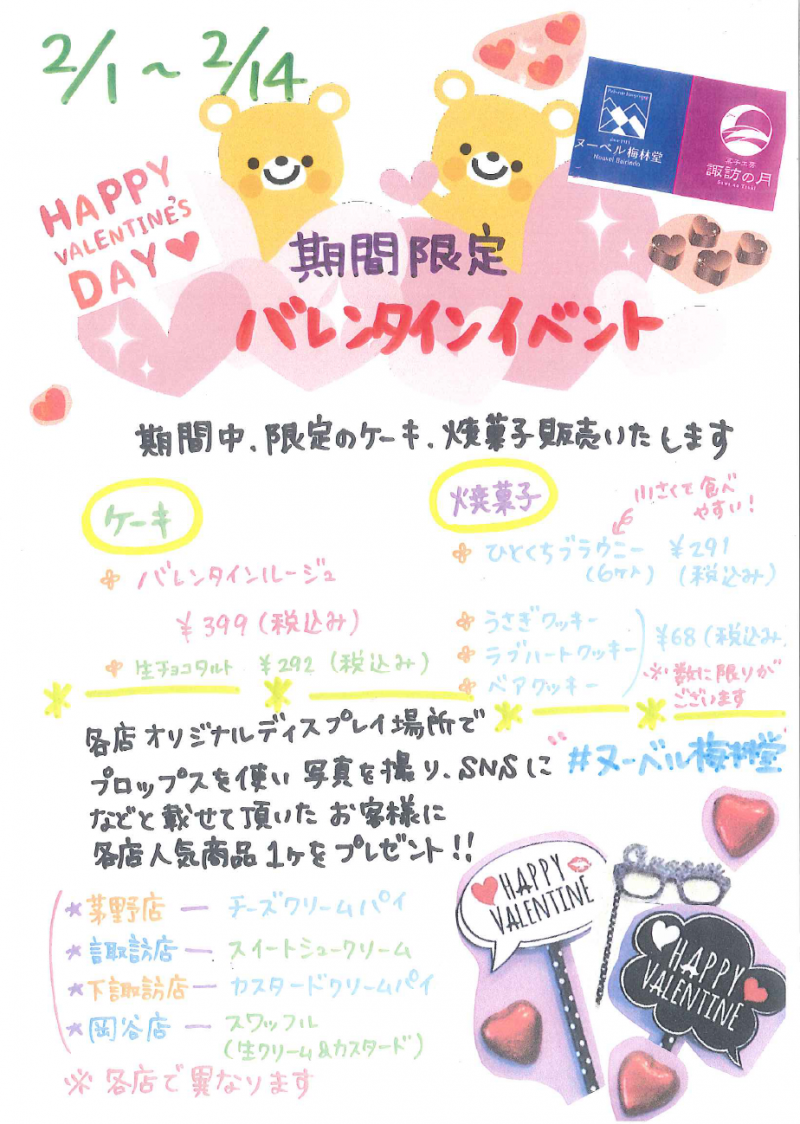 2/1～2/14
HAPPY
VALENTINE'S
DAY
ヌーベル梅林堂
Nouvel Bairindo
諏訪の月
期間限定
バレンタインイベント
期間中、限定のケーキ、焼菓子販売いたします
ケーキ
バレンタインルージュ
¥399(税込み)
生チョコタルト ¥292(税込み)
焼菓子
小さくて食べ
やすい!
ひとくちブラウニー ¥291
(6ケ入) (税込み)
うさぎクッキー
ラブハートクッキー
ベアクッキー
¥68(税込み
※数に限りが
ございます
各店オリジナルディスプレイ場所で
プロップスを使い写真を撮り、SNSに"#ヌーベル梅林堂
などと載せて頂いたお客様に
各店人気商品1ケをプレゼント!!
★茅野店 ー チーズクリームパイ
★諏訪店 ー スイートシュークリーム
★下諏訪店 ー カスタードクリームパイ
★岡谷店 ー スワッフル
(生クリーム&カスタード)
※各店で異なります
HAPPY
VALENTINE
HAPPY
VALENTINE